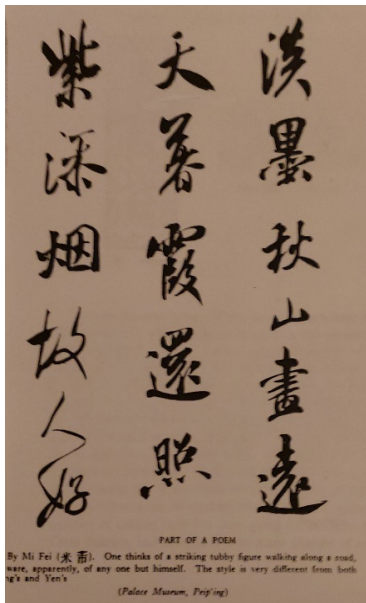 淡墨秋山畫遠
天暮霞還照
紫添烟故人好
PART OF A POEM
By Mi Fei (米芾). One thinks of a striking tubby figure walking along a road,
ware, apparently, of any one but himself. The style is very different from both
ng's and Yen's
(Palace Museum, Peip'ing)